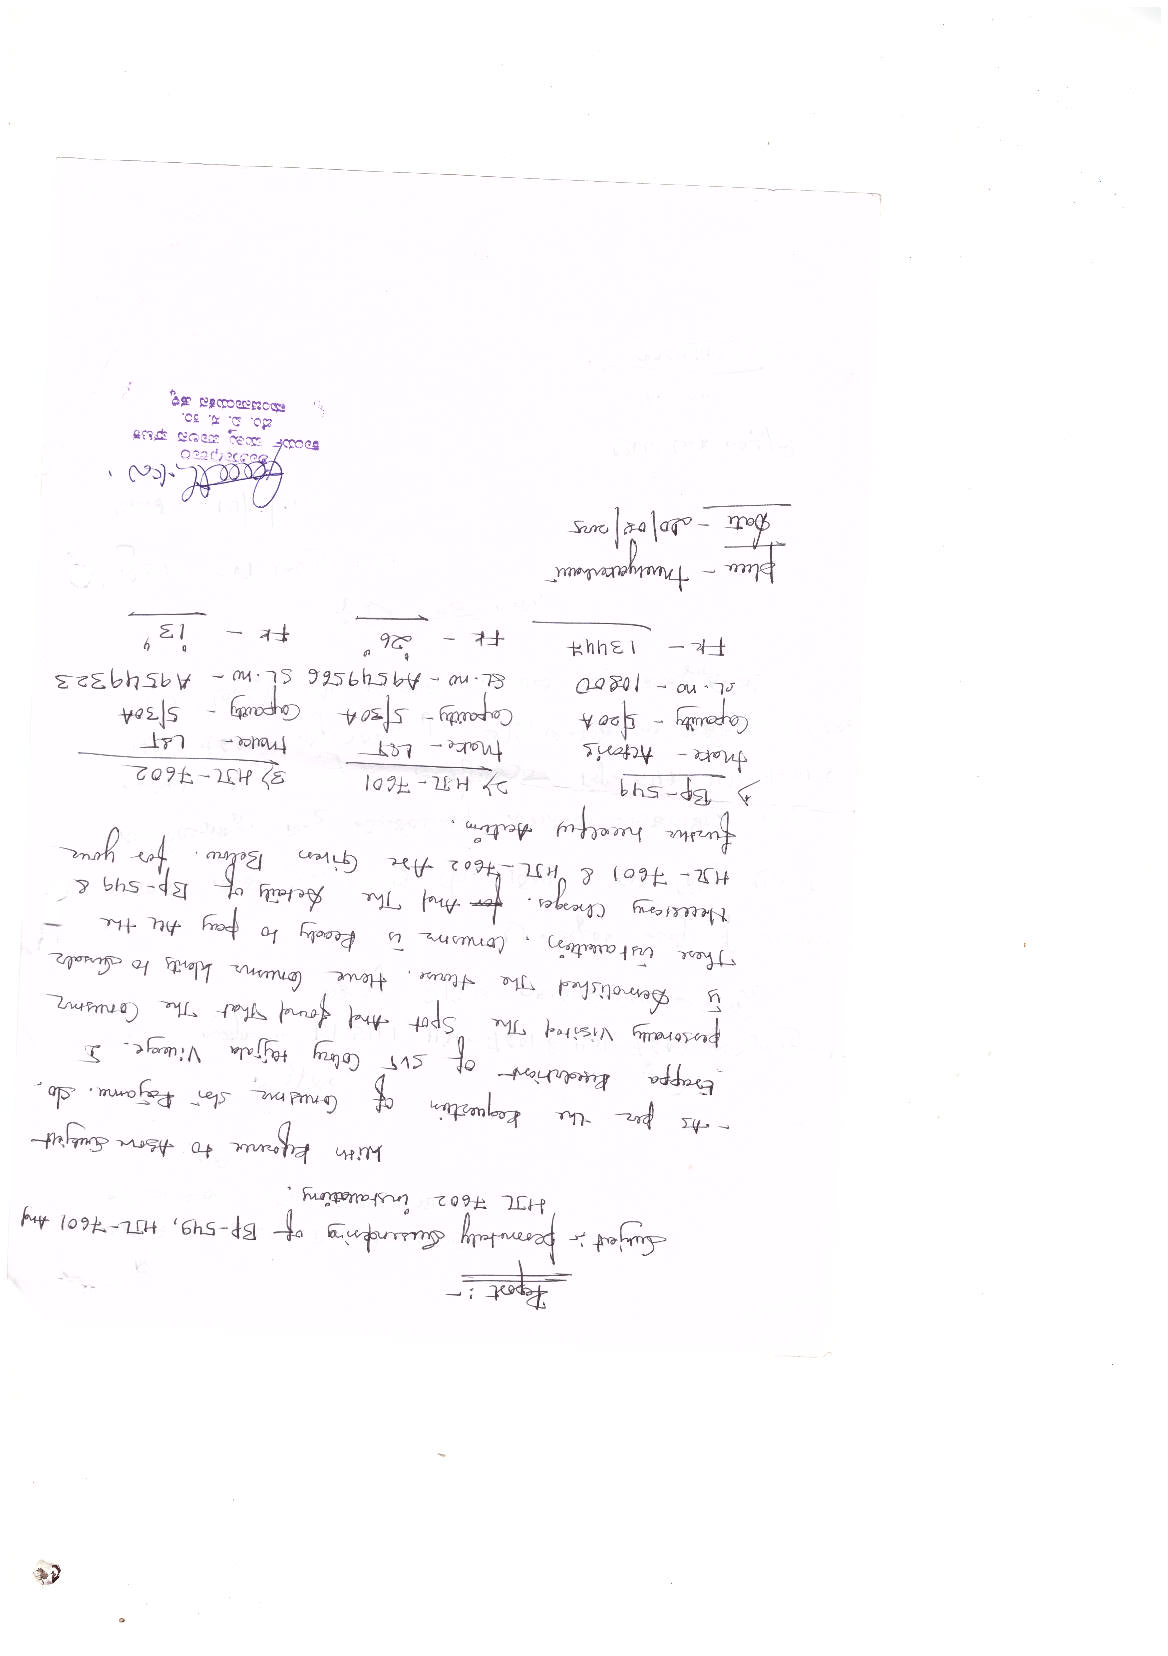 Report :-
Subject :- permutely Surrendring of Bp-549, HJL-7601 And
HJL 7602 installations.
With Reference to Above Subject
- As per the Requestion of Consumer Smt Rajamma. S/o.
Erappa Residition of SVT Colony Hajjala Village. I
personally Visited The Spot And found that The Consumer
is Demolished The House. Hence Consumer Wants to Surender
These installation, Consumer is Ready to pay All the -
Necessary Charges. And The Details of Bp-549 &
HJL-7601 & HJL-7602 Are Given Below. for your
further needful Action.
1) Bp-549 2) HJL-7601 3) HJL-7602
Make - Actaris Make - L&T Make - L&T
Capacity - 5/20A Capacity - 5/30A Capacity - 5/30A
SL.no - 10800 SL.no - A9549566 SL.no - A9549323
FR - 13447 FR - "26" FR - "13"
Place -
Date - 20/08/2005